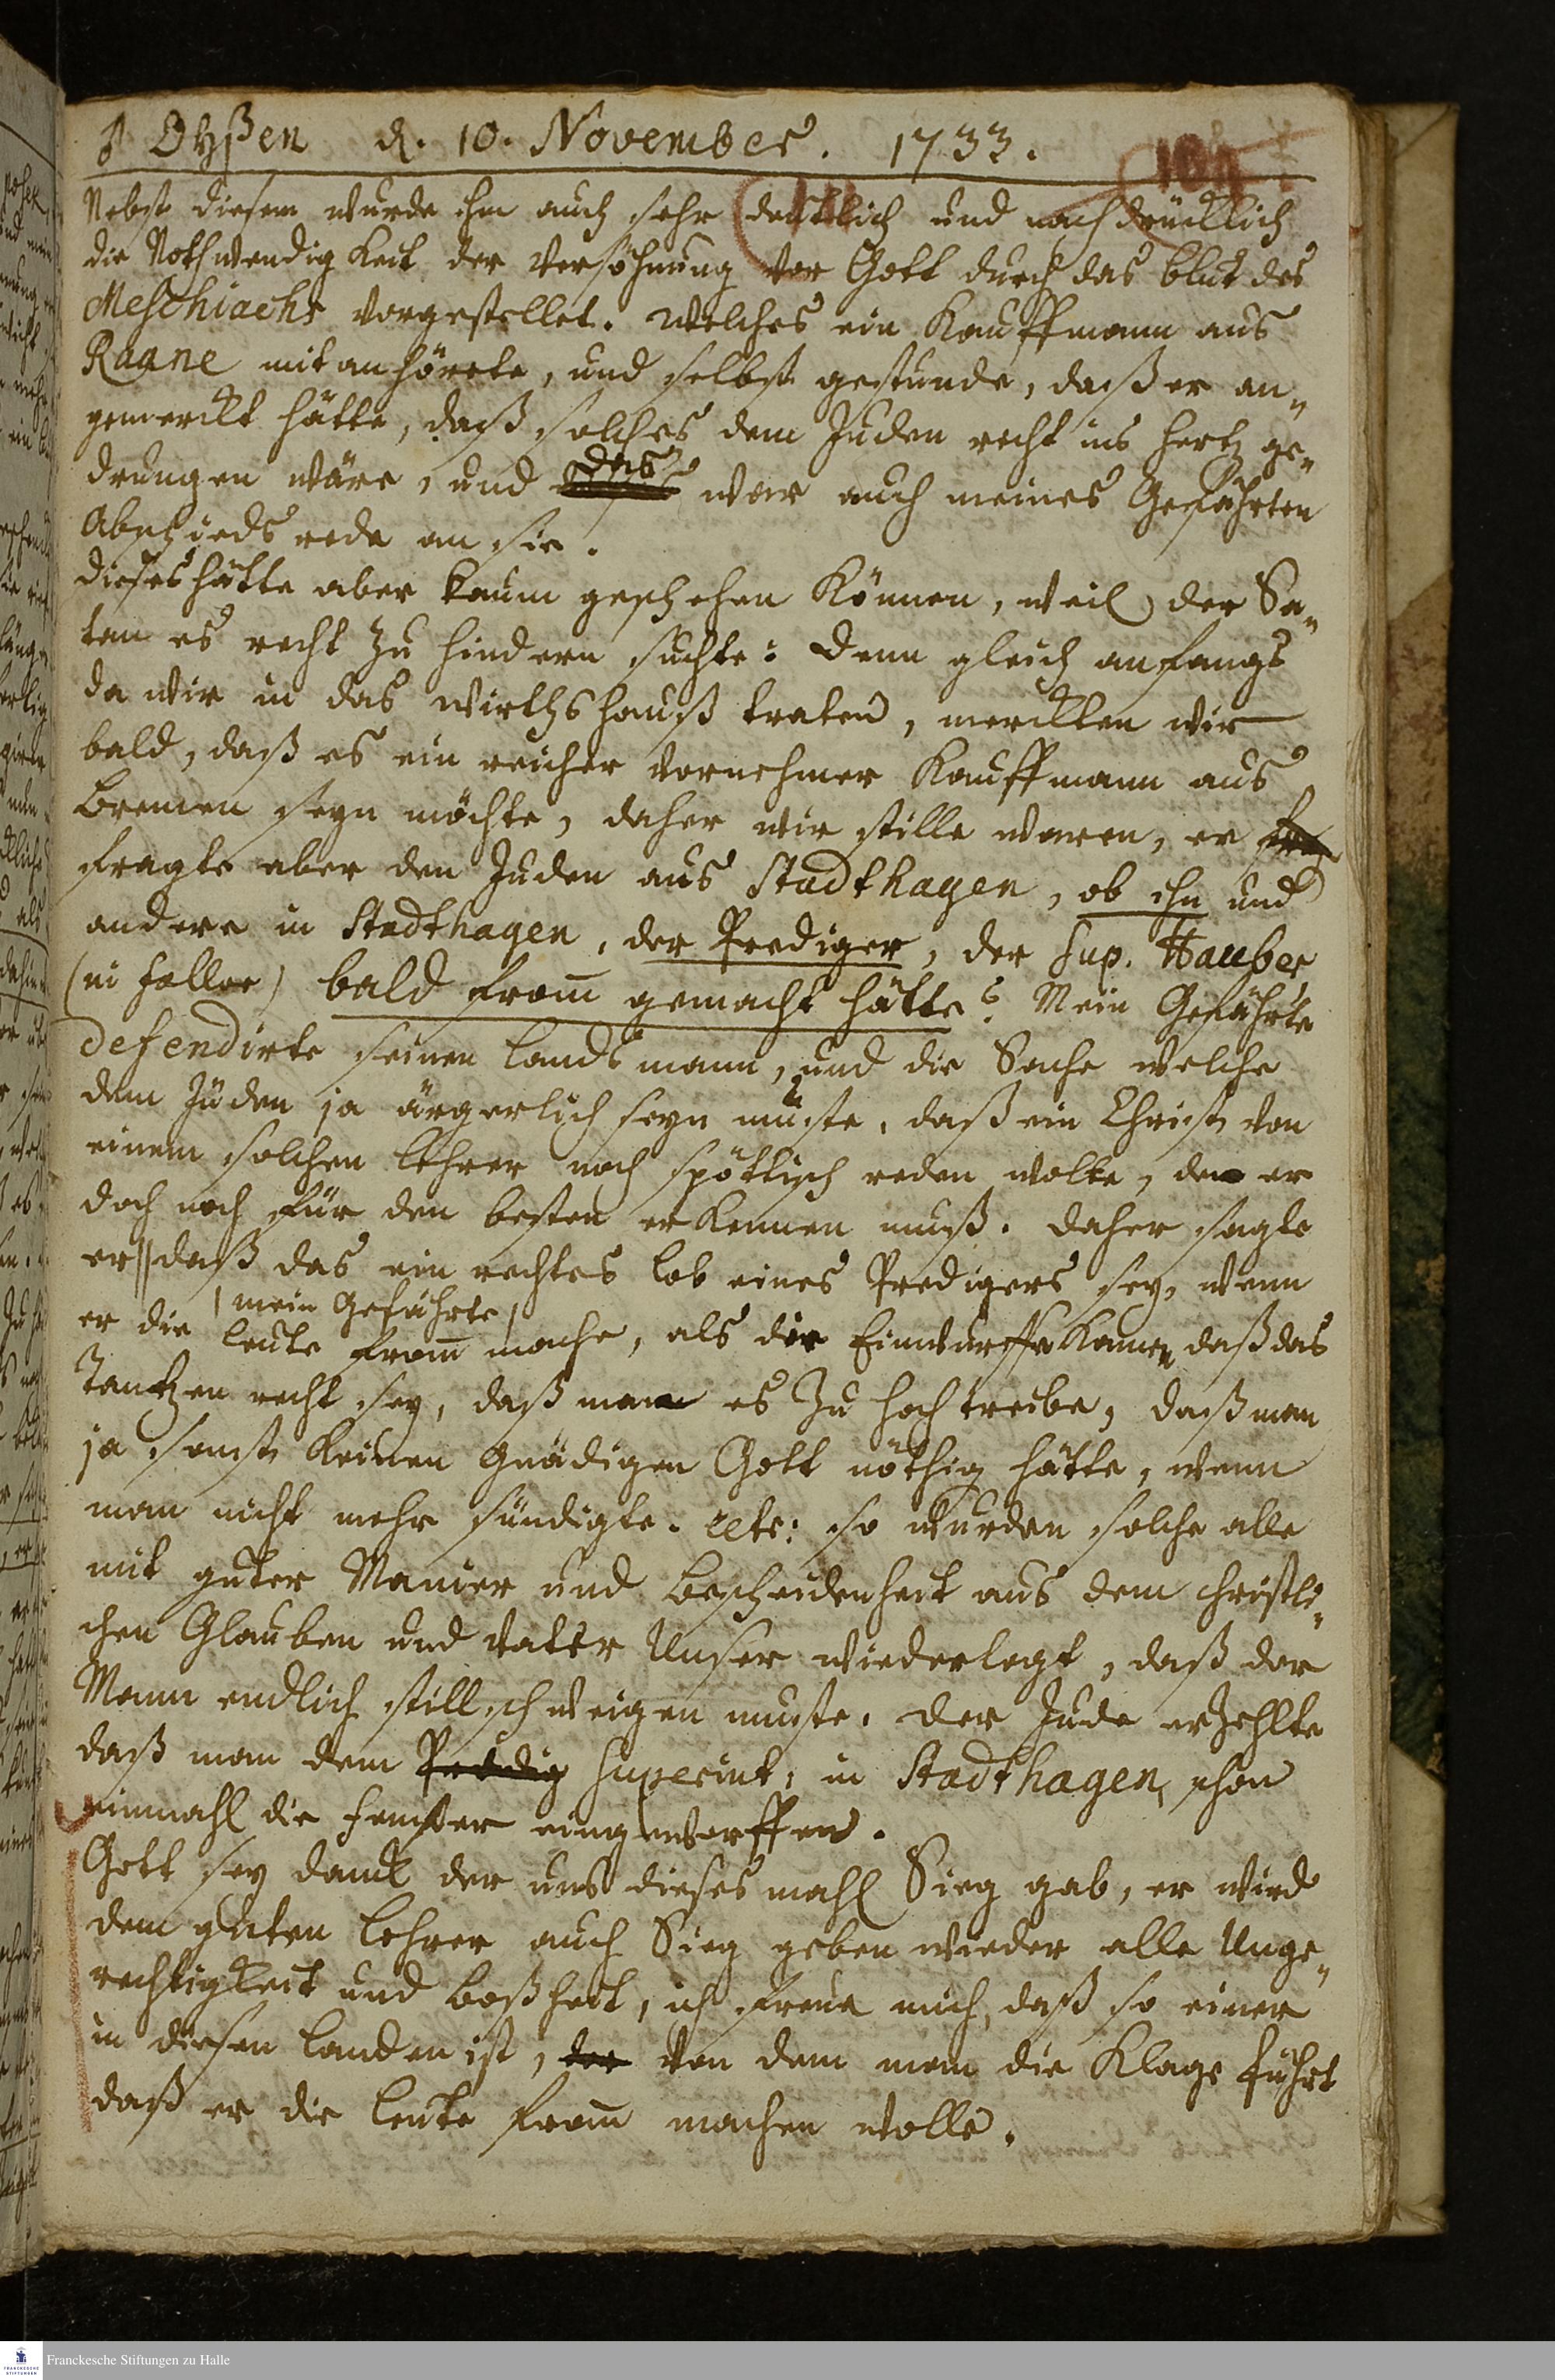 ♂ Oyßen d. 10. November. 1733.
Nebst diesem wurde ihm auch sehr deutlich und nachdrücklich
die Nothwendigkeit der Versöhnung vor Gott durch das blut des
Meschiachs vorgestellet. welches ein Kauffmann aus
mitanhörete, und selbst gestunde, daß er an„
gemerckt hätte, daß solches dem Juden recht ins hertz ge„
drungen wäre, und das war auch meines Gefährten
Abschieds rede an sie.
dieses hätte aber kaum geschehen können, weil der Sa„
tan es recht zu hindern suchte: denn gleich anfangs
da wir in das wirthshauß traten, merckten wir
bald, daß es ein reicher vornehmer Kauffmann aus
Bremen seyn möchte, daher wir stille waren, er
fragte aber den Juden aus Stadthagen, ob ihn und
andere in Stadthagen, der Prediger, der Sup. Hauber
bald from̄ gemacht hätte? Mein Gefährte
defendirte seinen landsmann, und die Sache welche
dem Jüden ja ärgerlich seyn müste, daß ein Christ von
einem solchen lehrer noch spöttisch reden wolte, den er
doch noch für den besten erkennen muß. daher sagte
er || daß das ein rechtes lob eines Predigers sey, wenn
| mein Gefährte |
er die leute from̄ mache, als die Einwürffe kamen daß das
Tantzen recht sey, daß man es zu hoch treibe, daß man
ja sonst keinen gnädigen Gott nöthig hätte, wenn
man nicht mehr sündigte. etc: so wurden solche alle
mit guter Manier und bescheidenheit aus dem christli„
chen Glauben und vater Unser wiederlegt, daß der
Mann endlich stillschweigen muste. der Jude erzehlte
daß man dem Predig Superint: in Stadthagen, schon
einmahl die fenster eingeworffen.
Gott sey danck der uns dieses mahl Sieg gab, er wird
dem guten lehrer auch Sieg geben wieder alle Unge„
rechtigkeit und boßheit, ich freue mich, daß so einer
in diesen landen ist, der von dem man die Klage führt
daß er die leute from̄ machen wolle.
Franckesche Stiftungen zu Halle